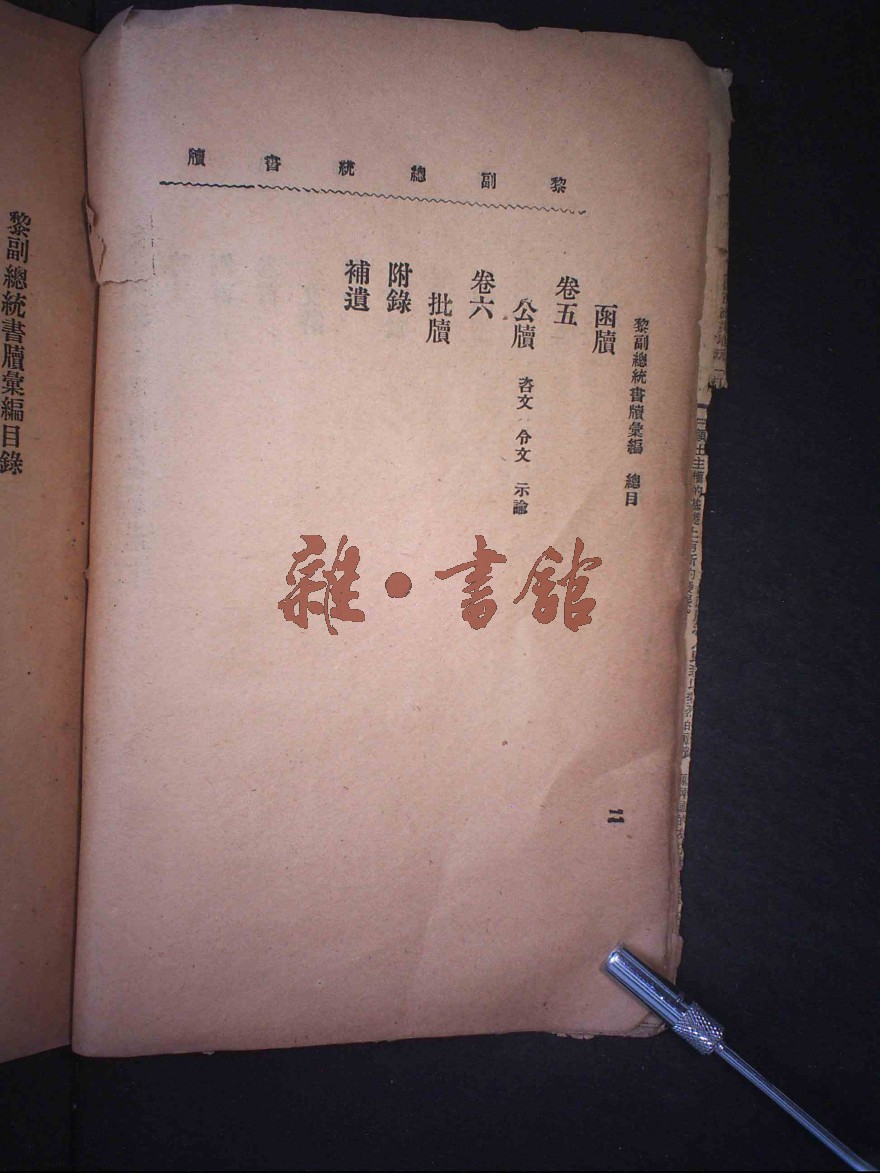 黎副總統書牘
黎副總統書牘彙編 總目
函牘
卷五
公牘 咨文 令文 示諭
卷六
批牘
附錄
補遺
二
黎副總統書牘彙編目錄
雜·書館